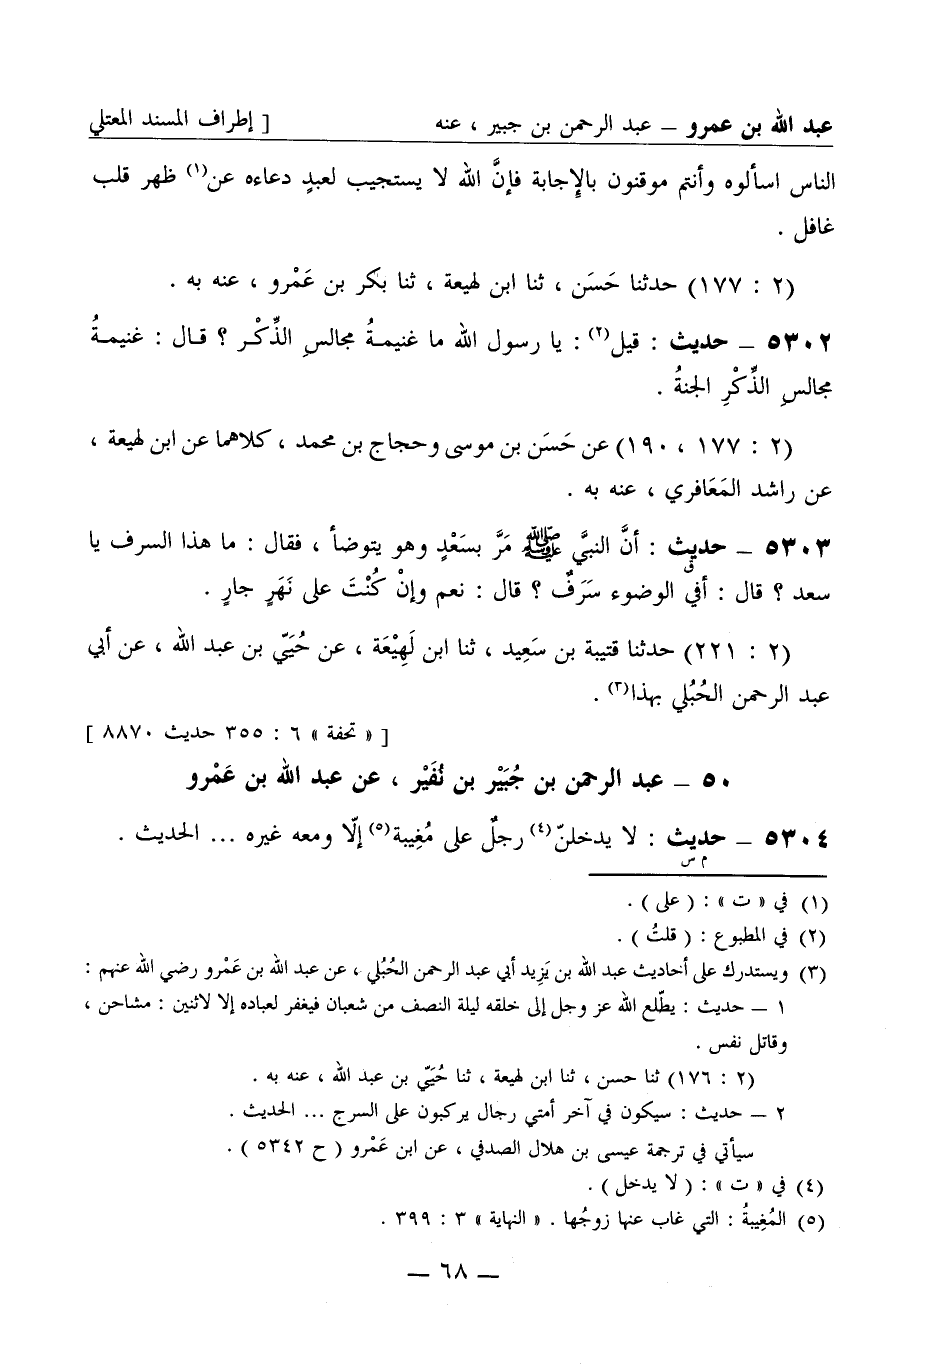 عبد الله بن عمرو – عبد الرحمن بن جبير ، عنه [ إطراف المسند المعتلي
الناس اسألوه وأنتم موقنون بالإِجابة فإنَّ الله لا يستجيب لعبدٍ دعاءه عن(١) ظهر قلب
غافل .
(٢ : ١٧٧) حدثنا حَسَن ، ثنا ابن لهيعة ، ثنا بكر بن عَمْرو ، عنه به .
٥٣٠٢ – حديث : قيل(٢) : يا رسول الله ما غنيمةُ مجالسِ الذِّكْر ؟ قال : غنيمةُ
مجالسِ الذِّكْرِ الجنةُ .
(٢ : ١٧٧ ، ١٩٠) عن حَسَن بن موسى وحجاج بن محمد ، كلاهما عن ابن لهيعة ،
عن راشد المَعَافري ، عنه به .
٥٣٠٣ – حديث : أنَّ النبيَّ ﷺ مَرَّ بسَعْدٍ وهو يتوضأ ، فقال : ما هذا السرف يا
ق
سعد ؟ قال : أفي الوضوء سَرَفٌ ؟ قال : نعم وإنْ كُنْتَ على نَهَرٍ جارٍ .
(٢ : ٢٢١) حدثنا قتيبة بن سَعِيد ، ثنا ابن لَهِيْعَة ، عن حُيَيّ بن عبد الله ، عن أبي
عبد الرحمن الحُبُلي بهذا(٣) .
[ « تحفة » ٦ : ٣٥٥ حديث ٨٨٧٠ ]
٥٠ – عبد الرحمن بن جُبَيْر بن نُفَيْر ، عن عبد الله بن عَمْرو
٥٣٠٤ – حديث : لا يدخلنّ(٤) رجلٌ على مُغِيبة(٥) إلّا ومعه غيره ... الحديث .
م س
(١) في « ت » : ( على ) .
(٢) في المطبوع : ( قلتُ ) .
(٣) ويستدرك على أحاديث عبد الله بن يَزِيد أبي عبد الرحمن الحُبُلي ، عن عبد الله بن عَمْرو رضي الله عنهم :
١ – حديث : يطّلع الله عز وجل إلى خلقه ليلة النصف من شعبان فيغفر لعباده إلا لاثنين : مشاحن ،
وقاتل نفس .
(٢ : ١٧٦) ثنا حسن ، ثنا ابن لهيعة ، ثنا حُيَيّ بن عبد الله ، عنه به .
٢ – حديث : سيكون في آخر أمتي رجال يركبون على السرج ... الحديث .
سيأتي في ترجمة عيسى بن هلال الصدفي ، عن ابن عَمْرو ( ح ٥٣٤٢ ) .
(٤) في « ت » : ( لا يدخل ) .
(٥) المُغِيبةُ : التي غاب عنها زوجُها . « النهاية » ٣ : ٣٩٩ .
– ٦٨ –